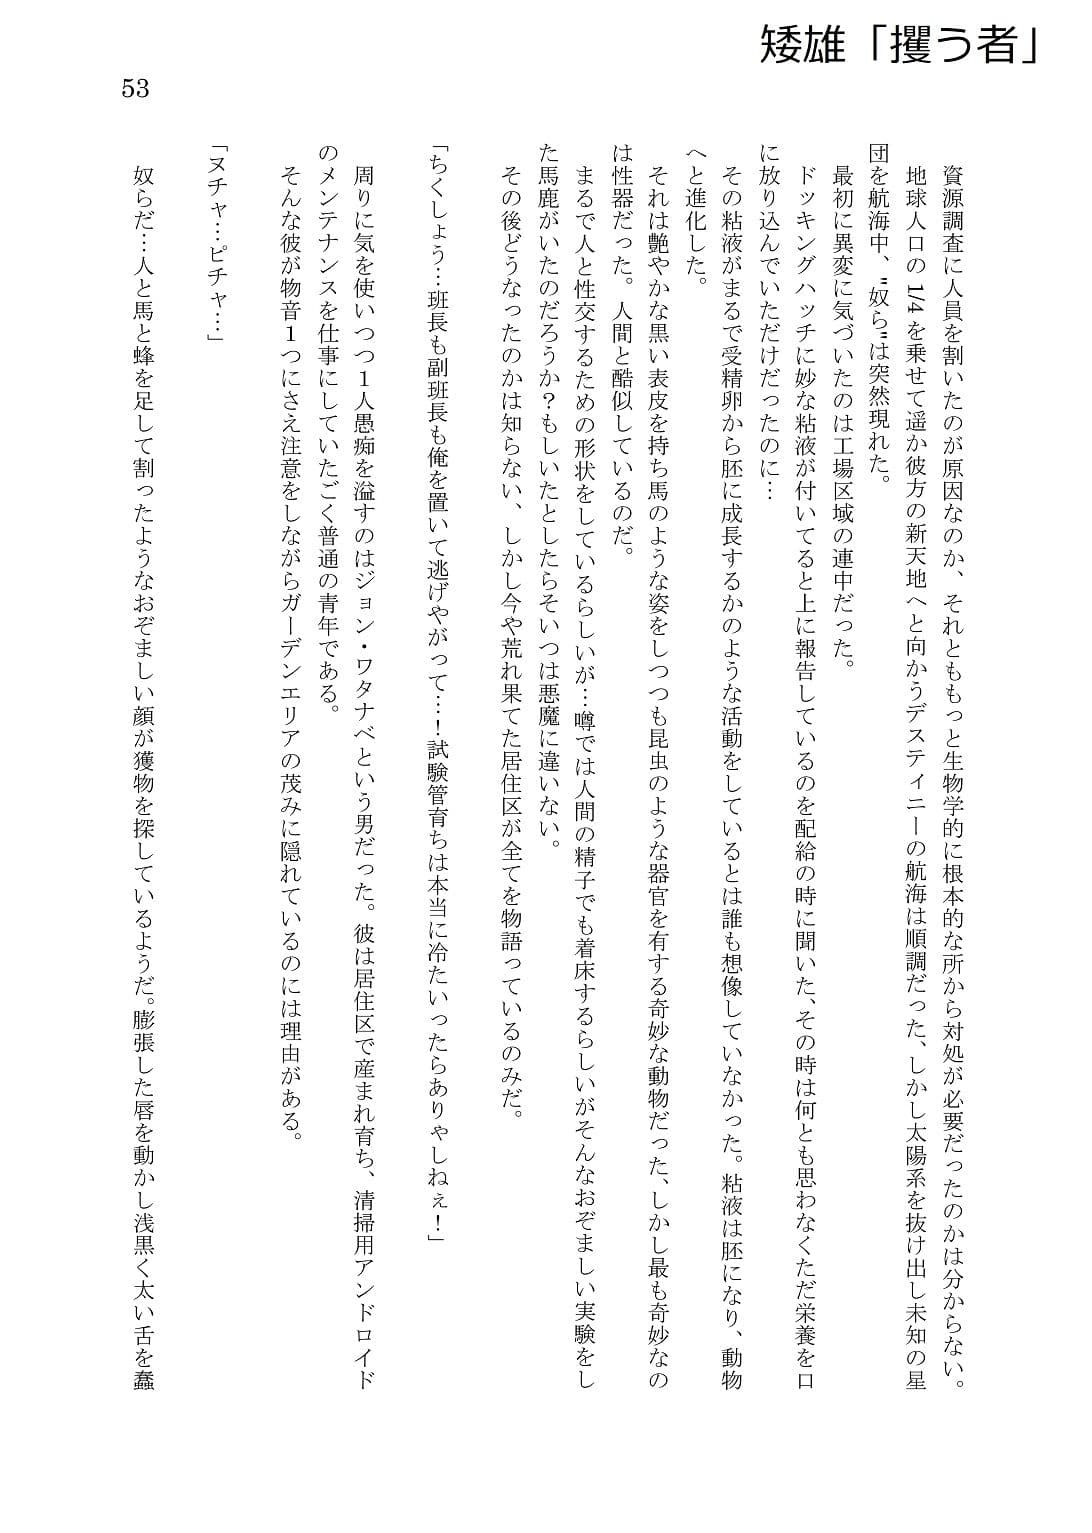 矮雄「攫う者」
53
資源調査に人員を割いたのが原因なのか、それとももっと生物学的に根本的な所から対処が必要だったのかは分からない。
地球人口の 1/4 を乗せて遥か彼方の新天地へと向かうデスティニーの航海は順調だった、しかし太陽系を抜け出し未知の星
団を航海中、"奴ら"は突然現れた。
最初に異変に気づいたのは工場区域の連中だった。
ドッキングハッチに妙な粘液が付いてると上に報告しているのを配給の時に聞いた、その時は何とも思わなくただ栄養を口
に放り込んでいただけだったのに…
その粘液がまるで受精卵から胚に成長するかのような活動をしているとは誰も想像していなかった。粘液は胚になり、動物
へと進化した。
それは艶やかな黒い表皮を持ち馬のような姿をしつつも昆虫のような器官を有する奇妙な動物だった、しかし最も奇妙なの
は性器だった。人間と酷似しているのだ。
まるで人と性交するための形状をしているらしいが…噂では人間の精子でも着床するらしいがそんなおぞましい実験をし
た馬鹿がいたのだろうか？もしいたとしたらそいつは悪魔に違いない。
その後どうなったのかは知らない、しかし今や荒れ果てた居住区が全てを物語っているのみだ。
「ちくしょう…班長も副班長も俺を置いて逃げやがって…！試験管育ちは本当に冷たいったらありゃしねぇ！」
周りに気を使いつつ１人愚痴を溢すのはジョン・ワタナベという男だった。彼は居住区で産まれ育ち、清掃用アンドロイド
のメンテナンスを仕事にしていたごく普通の青年である。
そんな彼が物音１つにさえ注意をしながらガーデンエリアの茂みに隠れているのには理由がある。
「ヌチャ…ピチャ…」
奴らだ…人と馬と蜂を足して割ったようなおぞましい顔が獲物を探しているようだ。膨張した唇を動かし浅黒く太い舌を蠢